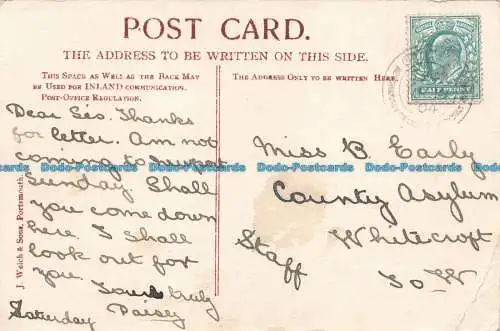 POST CARD.
THE ADDRESS TO BE WRITTEN ON THIS SIDE.
THIS SPACE AS WELL AS THE BACK MAY
BE USED FOR INLAND COMMUNICATION.
POST-OFFICE REGULATION.
THE ADDRESS ONLY TO BE WRITTEN HERE.
HALF PENNY
Dear Sis. Thanks
for letter. Am not
coming to Newport
Sunday. Shall
you come down
here. I shall
look out for
you. Yours truly
Saturday Daisy
Miss B Early
County Asylum
Whitecroft
Staff I o W
J. Welch & Sons, Portsmouth.
Dodo-Postcards Dodo-Postcards Dodo-Postcards Dodo-Postcards Dodo-Postcards